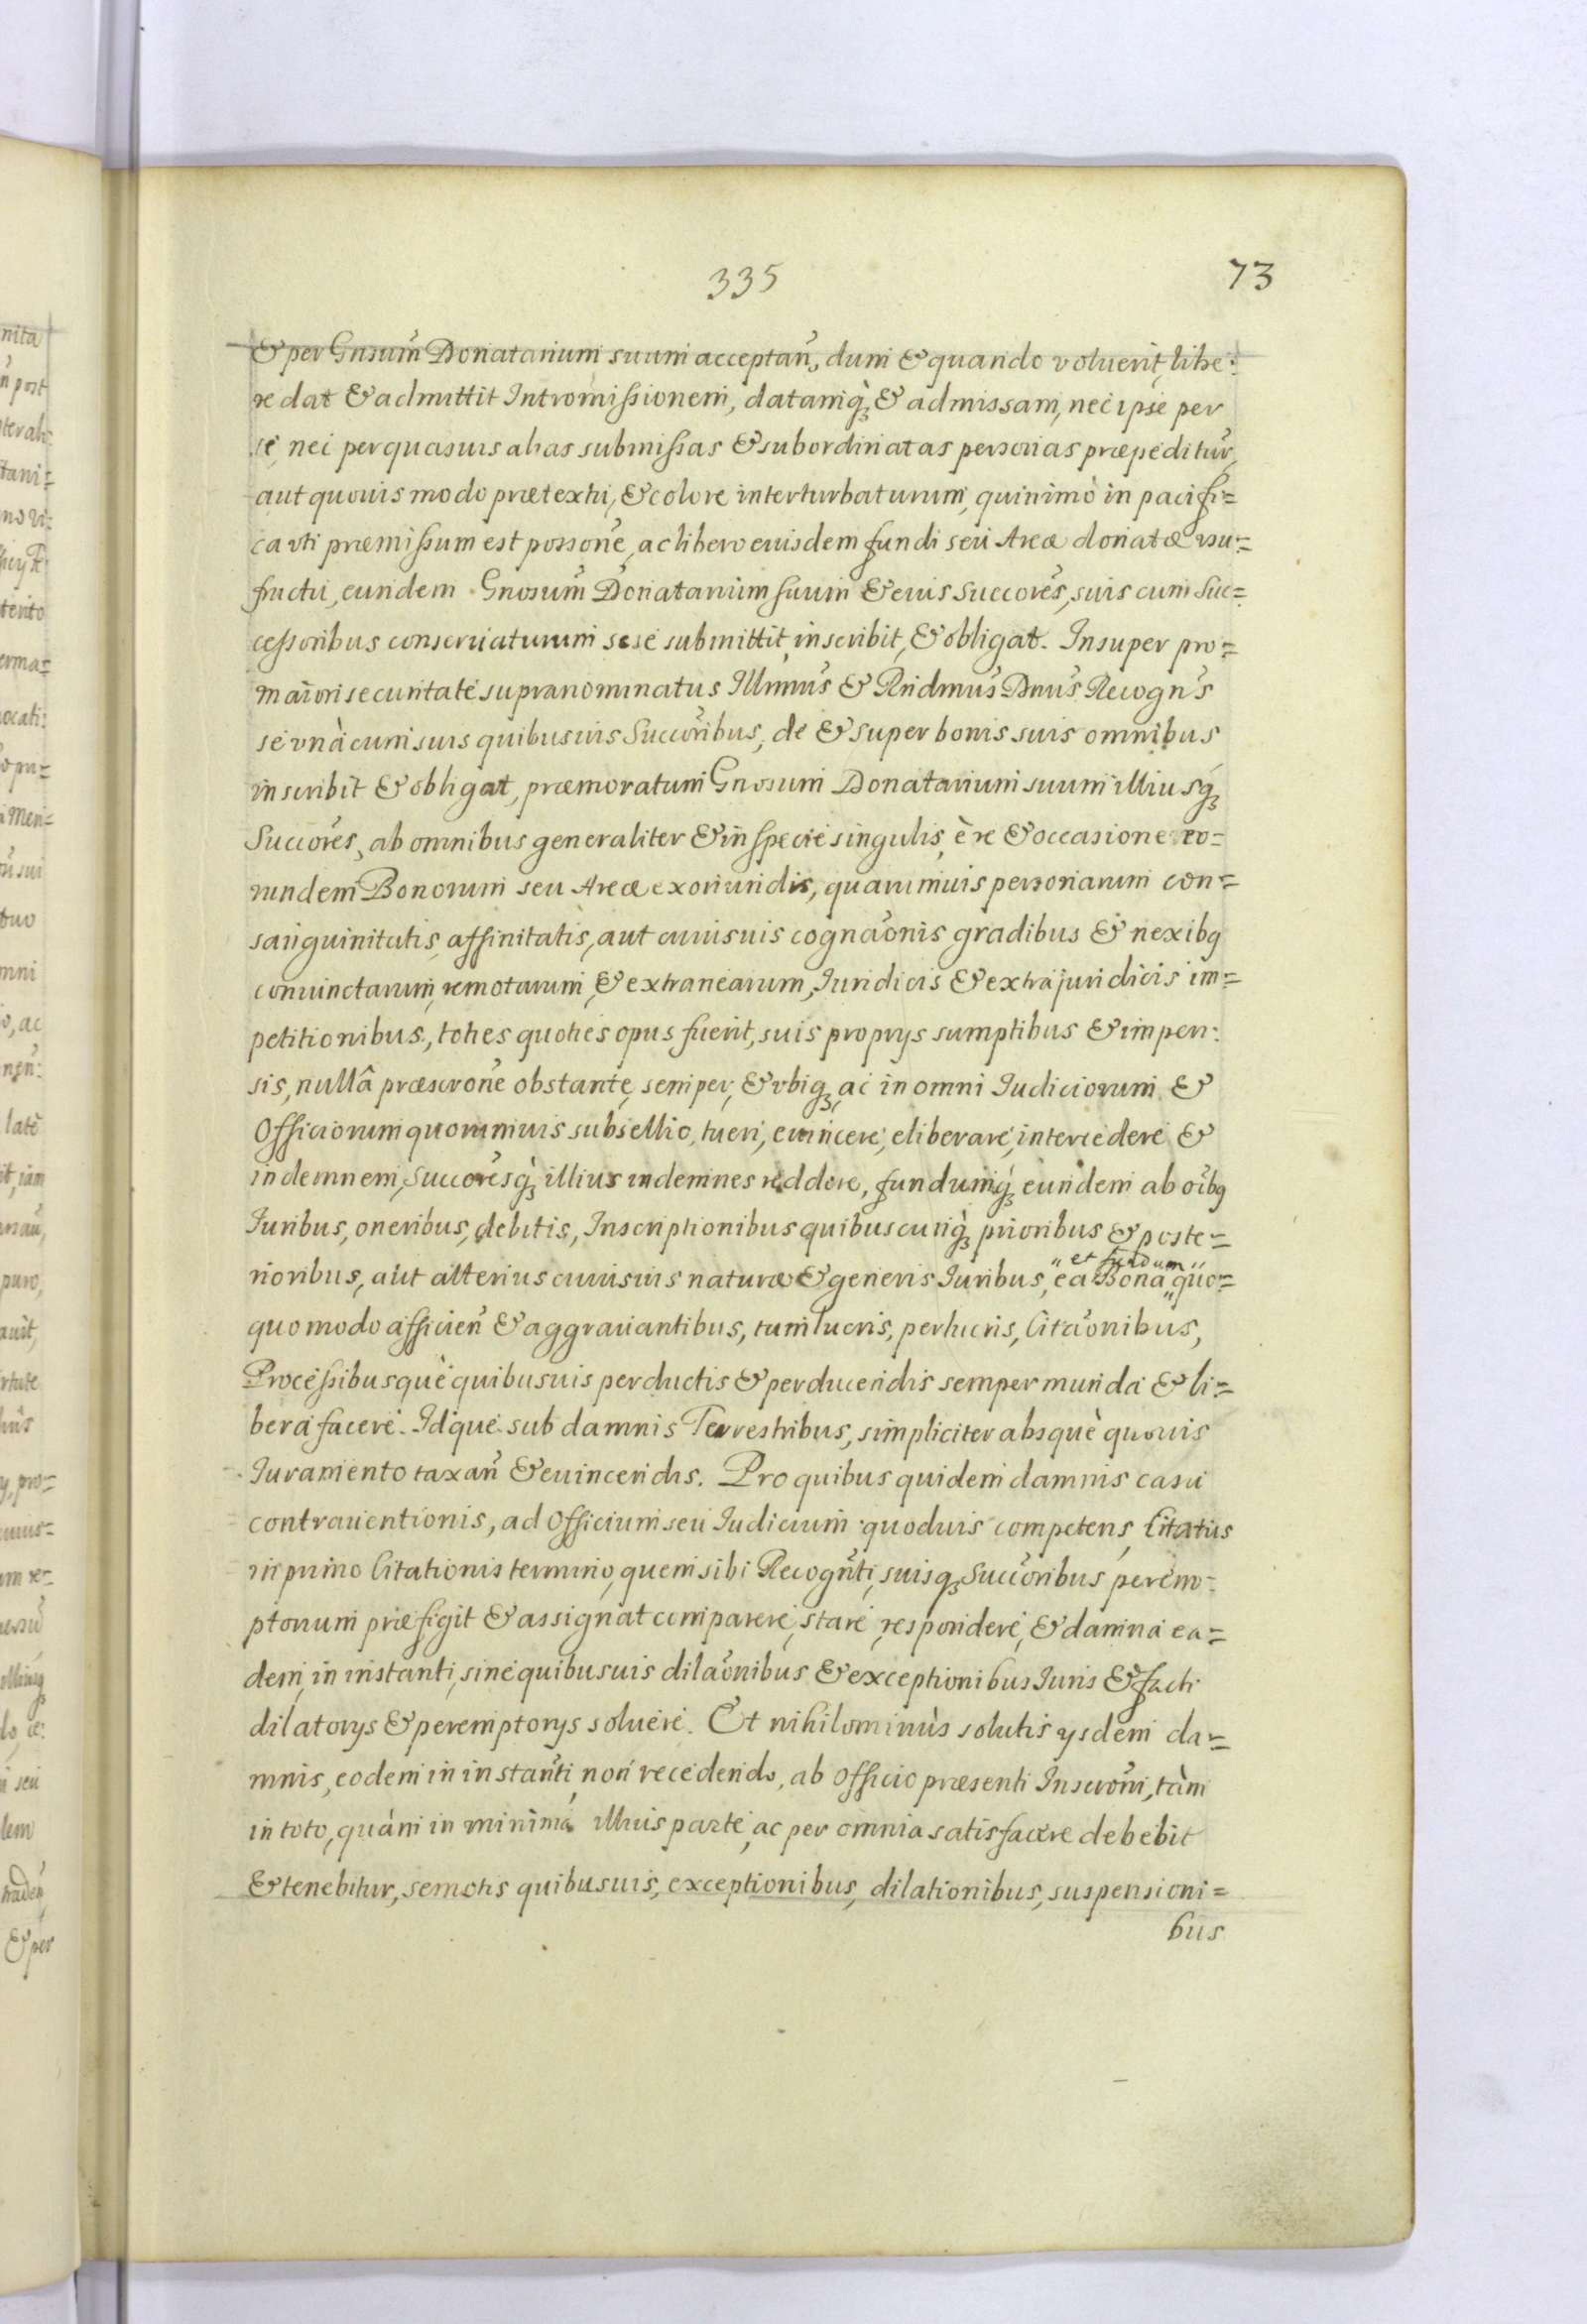 335
73
& per Gnsum̃ Donatarium suum acceptañ, dum & quando voluerit, libe:
re dat & admittit Intromissionem, datamq́; & admissam, nec ipse per
se, nec per quasuis alias submissas & subordinatas personas præpeditur,
aut quouis modo prætextu, & colore interturbaturum, quinimò in pacifi=
ca vti præmissum est possonẽ, ac libero euisdem fundi seu Areæ donatæ vsu=
fructu, eundem Gnosum̃ Donatarium suum & eius Succorẽs, suis cum Suc=
cessoribus conseruaturum sese submittit, inscribit, & obligat. Insuper pro=
maiori securitate supranominatus Illmũs & Rndmũs Dnũs Recogñs
se vnà cum suis quibusuis Succorĩbus, de & super bonis suis omnibus
inscribit & obligat, præmoratum Gnosum Donatarium suum illiusq́;
Succorẽs, ab omnibus generaliter & in specie singulis, è re & occasione eo=
rundem Bonorum seu Areæ exoriundis, quarumuis personarum con=
sanguinitatis, affinitatis, aut cuiusuis cognaõnis gradibus & nexibq
coniunctarum, remotarum, & extranearum, Iuridicis & extrajuridicis im=
petitionibus, toties quoties opus fuerit, suis proprys sumptibus & impen:
sis, nullâ præscronẽ obstante, semper, & vbiq;, ac in omni Iudiciorum &
Officiorum quorumuis subsellio, tueri, euincere, eliberare, intercedere &
indemnem, Succorẽsq́; illius indemnes reddere, fundumq́; eundem ab oĩbq
Iuribus, oneribus, debitis, Inscriptionibus quibuscunq́; prioribus & poste=
et fundum
rioribus, aut alterius cuiusuis naturæ & generis Iuribus, ea Bona quo=
quomodo afficieñ & aggrauantibus, tum lucris, perlucris, Citaõnibus,
Processibusquè quibusuis perductis & perducendis semper munda & li=
bera facere. Idque sub damnis Terrestribus, simpliciter absquè quouis
Iuramento taxañ & euincendis. Pro quibus quidem damnis casu
contrauentionis, ad Officium seu Iudicium quoduis competens, Citatus
in primo Citationis termino, quem sibi Recognti, suisq; Succorĩbus perem=
ptorium præfigit & assignat comparere, stare, respondere, & damna ea=
dem, in instanti, sine quibusuis dilaõnibus & exceptionibus Iuris & facti
dilatorys & peremptorys soluere. Et nihilominùs solutis ysdem da=
mnis, eodem in instanti, non recedendo, ab Officio præsenti Inscronĩ, tàm
in toto, quàm in minima illius parte, ac per omnia satisfacere debebit
& tenebitur, semotis quibusuis, exceptionibus, dilationibus, suspensioni=
bus